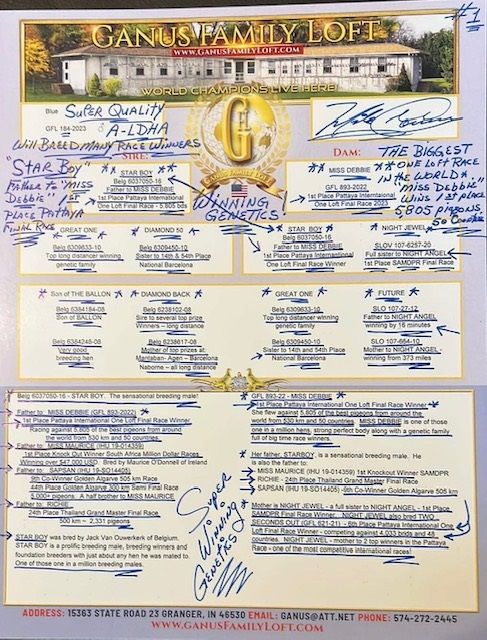 #1
GANUS FAMILY LOFT
WWW.GANUSFAMILYLOFT.COM
WORLD CHAMPIONS LIVE HERE
Blue SUPER QUALITY
GFL 184-2023 A-LDHA
WILL BREED MANY RACE WINNERS
SIRE:
DAM:
"STAR BOY"
FATHER TO "MISS
DEBBIE" 1ST
PLACE PATTAYA
FINAL RACE
STAR BOY
Belg 6037050-16
Father to MISS DEBBIE
1st Place Pattaya International
One Loft Final Race - 5,805 bds
WINNING
GENETICS!
GF
GANUS FAMILY LOFT
MISS DEBBIE
GFL 893-2022
1st Place Pattaya International
One Loft Final Race 2023
THE BIGGEST
ONE LOFT RACE
IN THE WORLD
"MISS DEBBIE"
WINS 1ST PLACE
5,805 PIGEONS
50 COUNTRIES
GREAT ONE
Belg 6309633-10
Top long distance winning
genetic family
DIAMOND 50
Belg 6309450-10
Sister to 14th & 54th Place
National Barcelona
STAR BOY
Belg 6037050-16
Father to MISS DEBBIE
1st Place Pattaya International
One Loft Final Race Winner
NIGHT JEWEL
SLOV 107-6257-20
Full sister to NIGHT ANGEL
1st Place SAMDPR Final Race
Son of THE BALLON
Belg 6384184-08
Son of BALLON
Belg 6384248-08
Very good
breeding hen
DIAMOND BACK
Belg 6238102-08
Sire to several top prize
Winners – long distance
Belg 6238617-08
Mother of top prizes at:
Mantaban- Agen – Barcelona
Naborne – all long distance
GREAT ONE
Belg 6309633-10
Top long distance winning
genetic family
Belg 6309450-10
Sister to 14th and 54th Place
National Barcelona
FUTURE
SLO 107-27-12
Father to NIGHT ANGEL
winning by 16 minutes
SLO 107-664-10
Mother to NIGHT ANGEL -
winning from 373 miles
Belg 6037050-16 - STAR BOY. The sensational breeding male!
Father to: MISS DEBBIE (GFL 893-2022)
1st Place Pattaya International One Loft Final Race Winner
Racing against 5,805 of the best pigeons from around
the world from 530 km and 50 countries.
Father to: MISS MAURICE (IHU 19-014359)
1st Place Knock Out Winner South Africa Million Dollar Races
Winning over $47,000 USD. Bred by Maurice O'Donnell of Ireland
Father to: SAPSAN (IHU 19-SO14405)
9th Co-Winner Golden Algarve 505 km Race
44th Place Golden Algarve 300 km Semi Final Race
5,000+ pigeons. A half brother to MISS MAURICE
Father to: RICHIE -
24th Place Thailand Grand Master Final Race
500 km – 2,331 pigeons
STAR BOY was bred by Jack Van Ouwerkerk of Belgium.
STAR BOY is a prolific breeding male, breeding winners and
foundation breeders with just about any hen he was mated to.
One of those one in a million breeding males.
SUPER
WINNING
GENETICS
GFL 893-22 - MISS DEBBIE
1st Place Pattaya International One Loft Final Race Winner
She flew against 5,805 of the best pigeons from around the
world from 530 km and 50 countries. MISS DEBBIE is one of those
one in a million hens, strong perfect body along with a genetic family
full of big time race winners.
Her father, STARBOY, is a sensational breeding male. He
is also the father to:
MISS MAURICE (IHU 19-014359) 1st Knockout Winner SAMDPR
RICHIE - 24th Place Thailand Grand Master Final Race
SAPSAN (IHU 19-SO14405) -9th Co-Winner Golden Algarve 505 km
Mother is NIGHT JEWEL - a full sister to NIGHT ANGEL - 1st Place
SAMDPR Final Race Winner. NIGHT JEWEL also bred TWO
SECONDS OUT (GFL 621-21) - 6th Place Pattaya International One
Loft Final Race Winner - competing against 4,033 birds and 48
countries. NIGHT JEWEL - mother to 2 top winners in the Pattaya
Race - one of the most competitive international races!
ADDRESS: 15363 STATE ROAD 23 GRANGER, IN 46530 EMAIL: GANUS@ATT.NET PHONE: 574-272-2445
WWW.GANUSFAMILYLOFT.COM